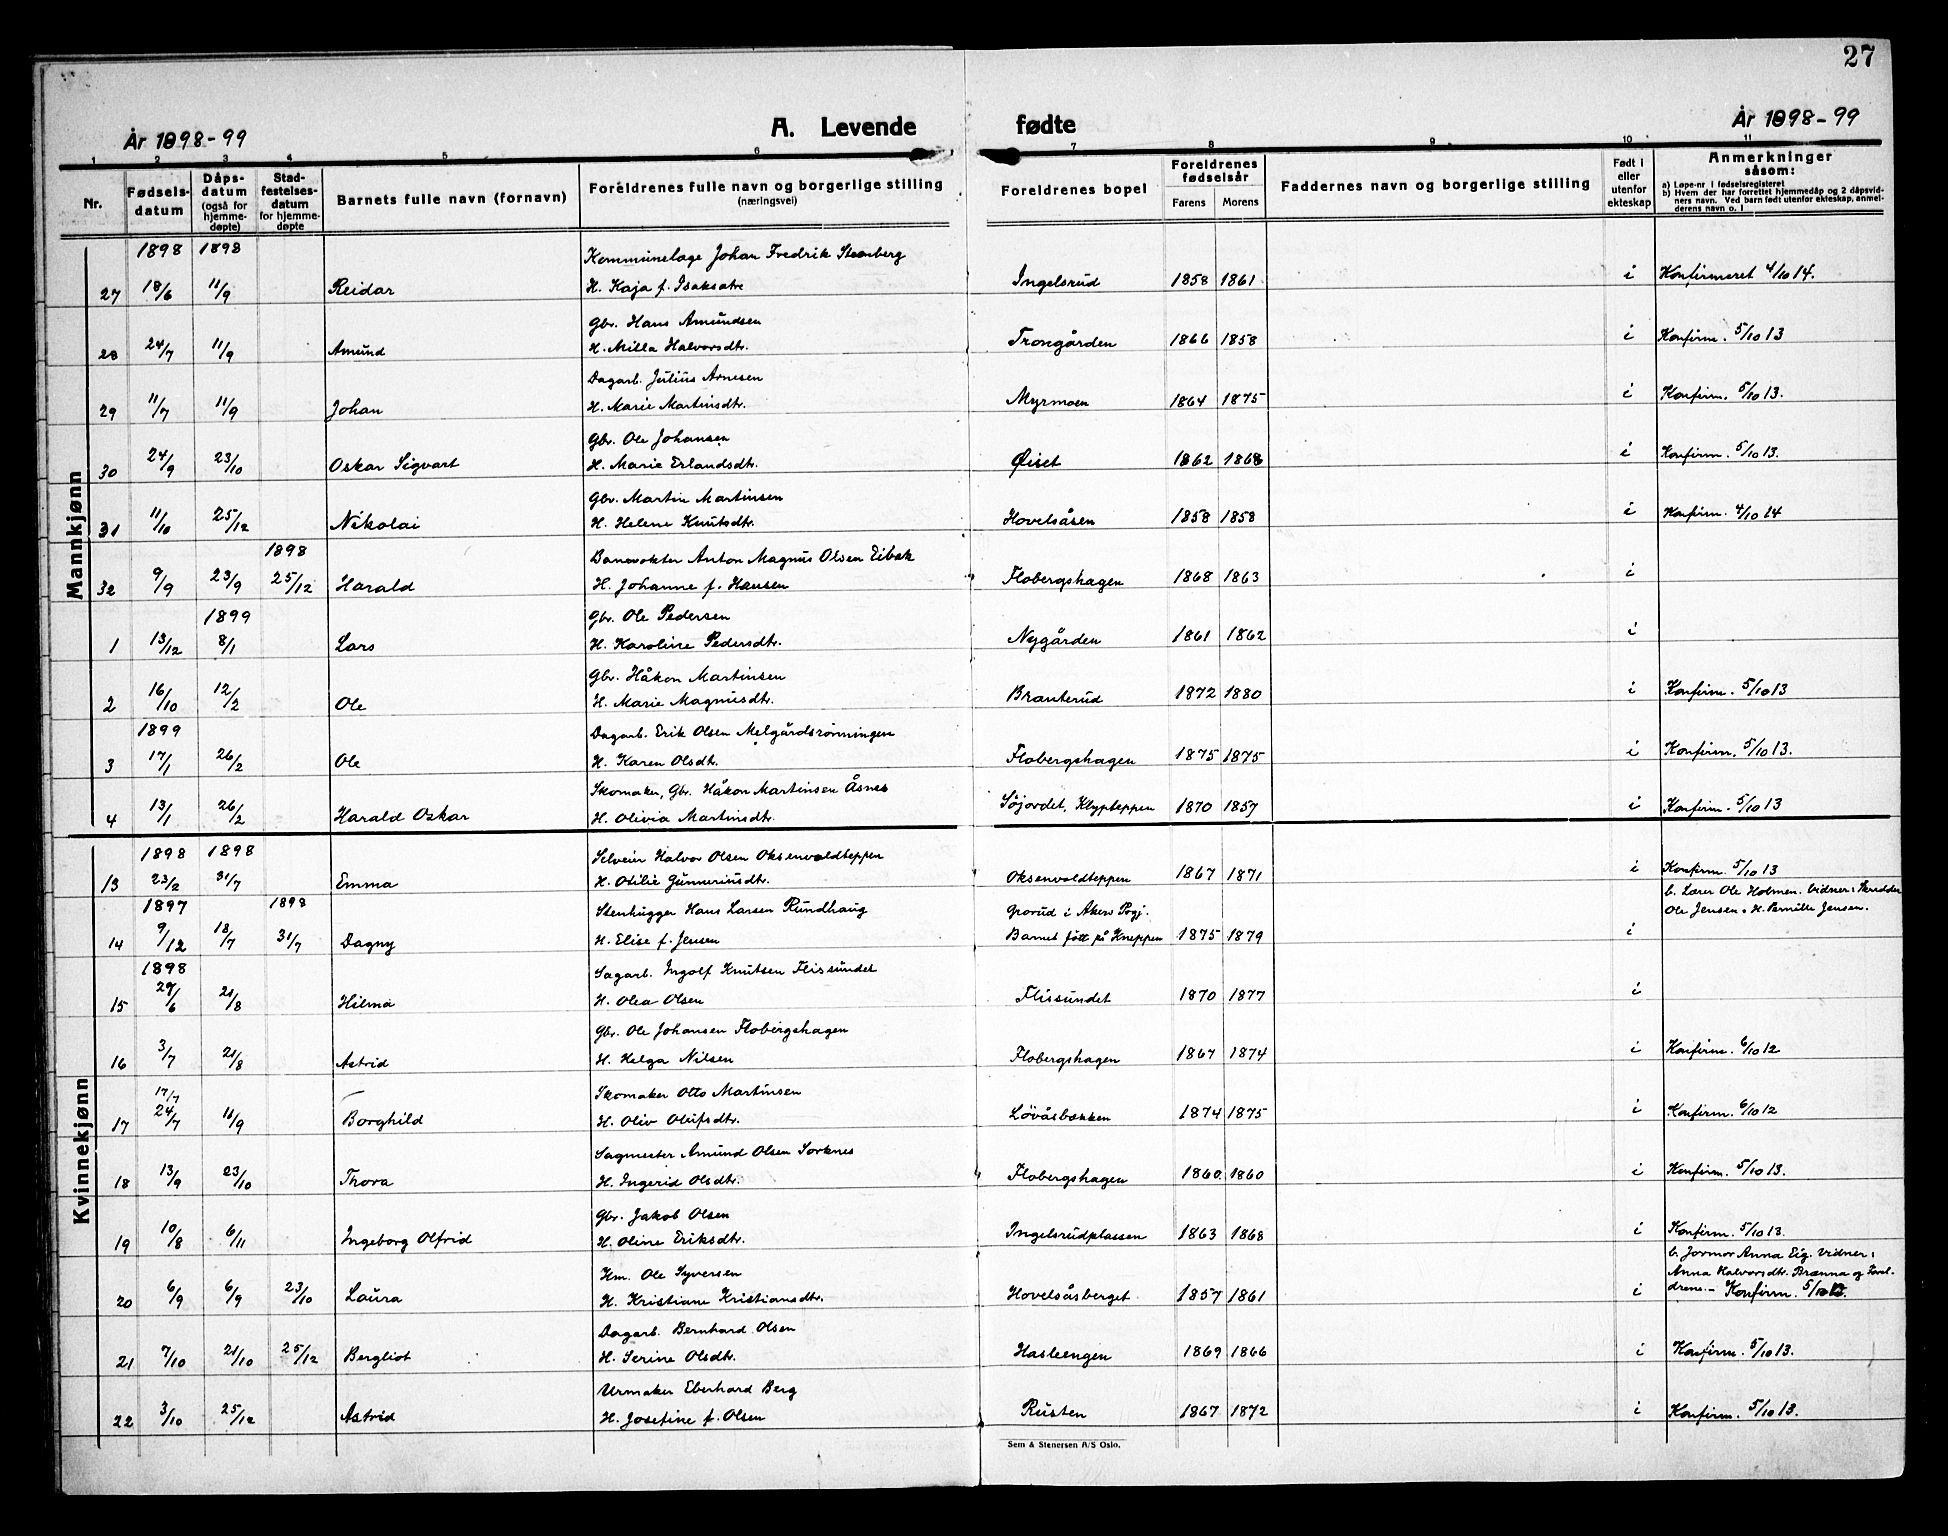 27
År 1898-99
A. Levende fødte
År 1898-99
1 2 3 4 5 6 7 8 9 10 11
Nr. | Fødsels-datum | Dåps-datum (også for hjemme-døpte) | Stad-festelses-datum for hjemme-døpte | Barnets fulle navn (fornavn) | Foreldrenes fulle navn og borgerlige stilling (næringsvei) | Foreldrenes bopel | Foreldrenes fødselsår Farens Morens | Faddernes navn og borgerlige stilling | Født i eller utenfor ekteskap | Anmerkninger såsom: a) Løpe-nr i fødselsregisteret b) Hvem der har forrettet hjemmedåp og 2 dåpsvidners navn. Ved barn født utenfor ekteskap, anmelderens navn o. l
Mannkjønn
1898 1898 Kommunelæge Johan Fredrik Stenberg
27 18/6 11/9 Reidar H. Kaja f. Isaksætre Ingelsrud 1858 1861 i Konfirmeret 4/10 14.
Gbr. Hans Amundsen
28 24/7 11/9 Amund H. Milla Halvorsdtr. Trongården 1866 1858 i Konfirm. 5/10 13
Dagarb. Julius Arnesen
29 11/7 11/9 Johan H. Marie Martinsdtr. Myrmoen 1864 1875 i Konfirm. 5/10 13.
Gbr. Ole Johansen
30 24/9 23/10 Oskar Sigvart H. Marie Erlandsdtr. Øiset 1862 1868 i Konfirm. 5/10 13.
Gbr. Martin Martinsen
31 11/10 25/12 Nikolai H. Helene Knutsdtr. Hovelsåsen 1858 1858 i Konfirm. 4/10 14
1898 Banevokter Anton Magnus Olsen Eibæk
32 9/9 23/9 25/12 Harald H. Johanne f. Hansen Flobergshagen 1868 1863 i
1899 Gbr. Ole Pedersen
1 13/12 8/1 Lars H. Karoline Pedersdtr. Nygården 1861 1862 i
Gbr. Håkon Martinsen
2 16/10 12/2 Ole H. Marie Magnusdtr. Branterud 1872 1880 i Konfirm. 5/10 13
1899 Dagarb. Erik Olsen Melgårdsrønningen
3 17/1 26/2 Ole H. Karen Olsdtr. Flobergshagen 1875 1875 i Konfirm. 5/10 13.
Skomaker, Gbr. Håkon Martinsen Åsnes
4 13/1 26/2 Harald Oskar H. Olivia Martinsdtr. Søjordet, Klypteppen 1870 1857 i Konfirm. 5/10 13
Kvinnekjønn
1898 1898 Selveier Halvor Olsen Oksenvoldteppen
13 23/2 31/7 Emma H. Otilie Gunneriusdtr. Oksenvoldteppen 1867 1871 i Konfirm. 5/10 13
1897 1898 Stenhugger Hans Larsen Rundhaug Grorud i Akers Pgj. b. Lærer Ole Holmen. Vidner: Skrædder
Ole Jensen, H. Pernille Jensen.
14 9/12 18/7 31/7 Dagny H. Elise f. Jensen Barnet født på Kneppen 1875 1879 i
1898 Sagarb. Ingolf Knutsen Flissundet
15 29/6 21/8 Hilma H. Olea Olsen Flissundet 1870 1877 i
Gbr. Ole Johansen Flobergshagen
16 3/7 21/8 Astrid H. Helga Nilsen Flobergshagen 1867 1874 i Konfirm. 6/10 12
17/7 Skomaker Otto Martinsen
17 24/7 11/9 Borghild H. Oliv Olufsdtr. Løvåsbækken 1874 1875 i Konfirm. 6/10 12
Sagmester Amund Olsen Sorknes
18 13/9 23/10 Thora H. Ingerid Olsdtr. Flobergshagen 1860 1860 i Konfirm. 5/10 13.
Gbr. Jakob Olsen
19 10/8 6/11 Ingeborg Olfrid H. Oline Eriksdtr. Ingelsrudplassen 1863 1868 i Konfirm. 5/10 13.
Hm. Ole Syversen b. Jormor Anna Eig. Vidner:
Anna Halvorsdtr. Brænna og Forel-
20 6/9 6/9 23/10 Laura H. Kristiane Kristiansdtr. Hovelsåsberget 1857 1861 i drene. - Konfirm. 5/10
Dagarb. Bernhard Olsen
21 7/10 21/10 25/12 Bergliot H. Serine Olsdtr. Hasleengen 1869 1866 i Konfirm. 5/10 13.
Urmaker Eberhard Berg
22 3/10 25/12 Astrid H. Josefine f. Olsen Rusten 1867 1872 i Konfirm. 5/10 13.
Sem & Stenersen A/S Oslo.